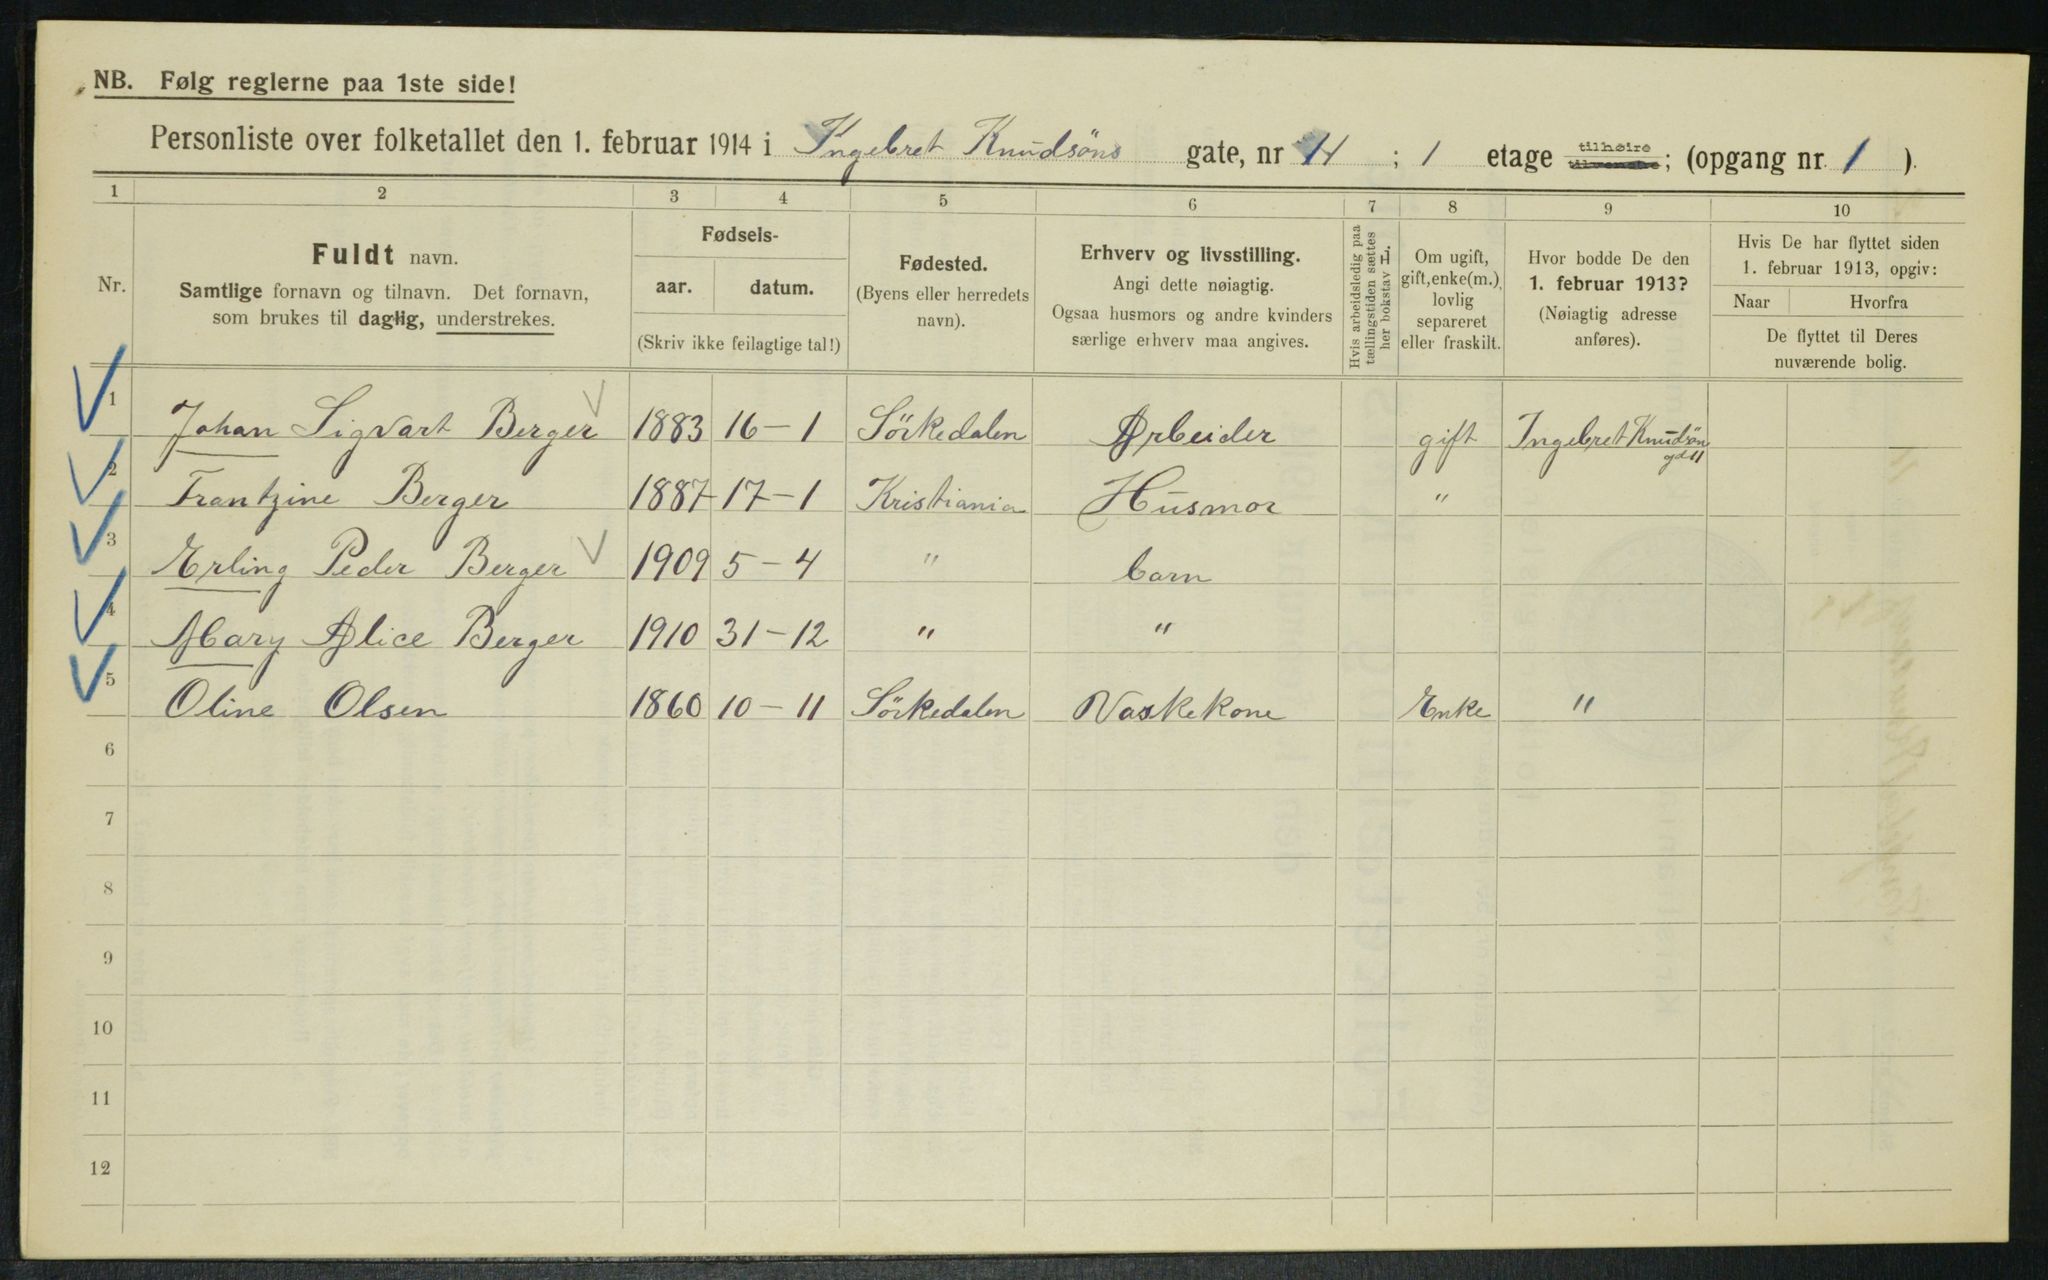 NB. Følg reglerne paa 1ste side!
Personliste over folketallet den 1. februar 1914 i Ingebret Knudsöns gate, nr 11 ; 1 etage tilhøire; (opgang nr. 1 ).
1 2 3 4 5 6 7 8 9 10
Nr.
Fuldt navn.
Samtlige fornavn og tilnavn. Det fornavn,
som brukes til daglig, understrekes.
Fødsels-
aar. datum.
(Skriv ikke feilagtige tal!)
Fødested.
(Byens eller herredets
navn).
Erhverv og livsstilling.
Angi dette nøiagtig.
Ogsaa husmors og andre kvinders
særlige erhverv maa angives.
Hvis arbeidsledig paa
tællingstiden sættes
her bokstav L.
Om ugift,
gift, enke(m.),
lovlig
separeret
eller fraskilt.
Hvor bodde De den
1. februar 1913?
(Nøiagtig adresse
anføres).
Hvis De har flyttet siden
1. februar 1913, opgiv:
Naar Hvorfra
De flyttet til Deres
nuværende bolig.
1 Johan Sigvart Berger 1883 16-1 Sörkedalen Arbeider gift Ingebret Knudsön
gd 11
2 Frantzine Berger 1887 17-1 Kristiania Husmor "
3 Erling Peder Berger 1909 5-4 " barn
4 Mary Alice Berger 1910 31-12 " "
5 Oline Olsen 1860 10-11 Sörkedalen Vaskekone Enke "
6
7
8
9
10
11
12